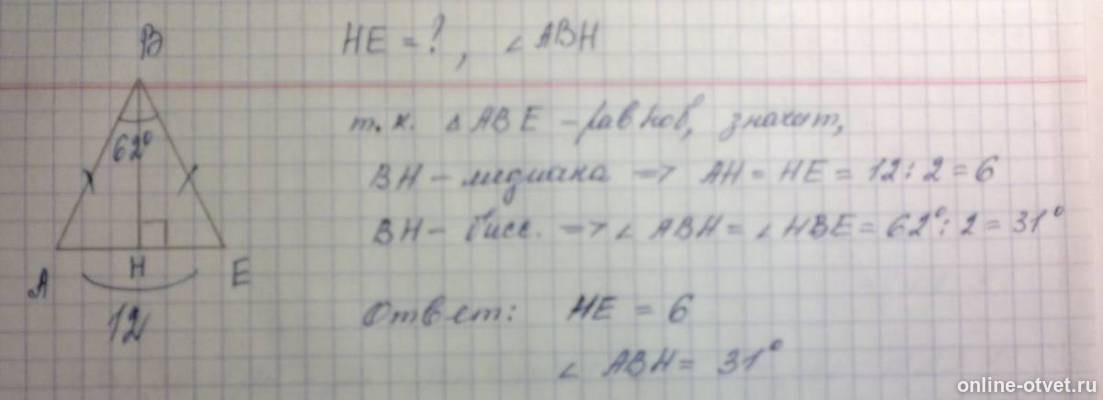 HE = ?, ∠ ABH
B
62°
A
H
E
12
т.к. △ ABE – равноб, значит,
BH – медиана => AH = HE = 12 : 2 = 6
BH – бисс. => ∠ ABH = ∠ HBE = 62° : 2 = 31°
Ответ: HE = 6
∠ ABH = 31°
online-otvet.ru